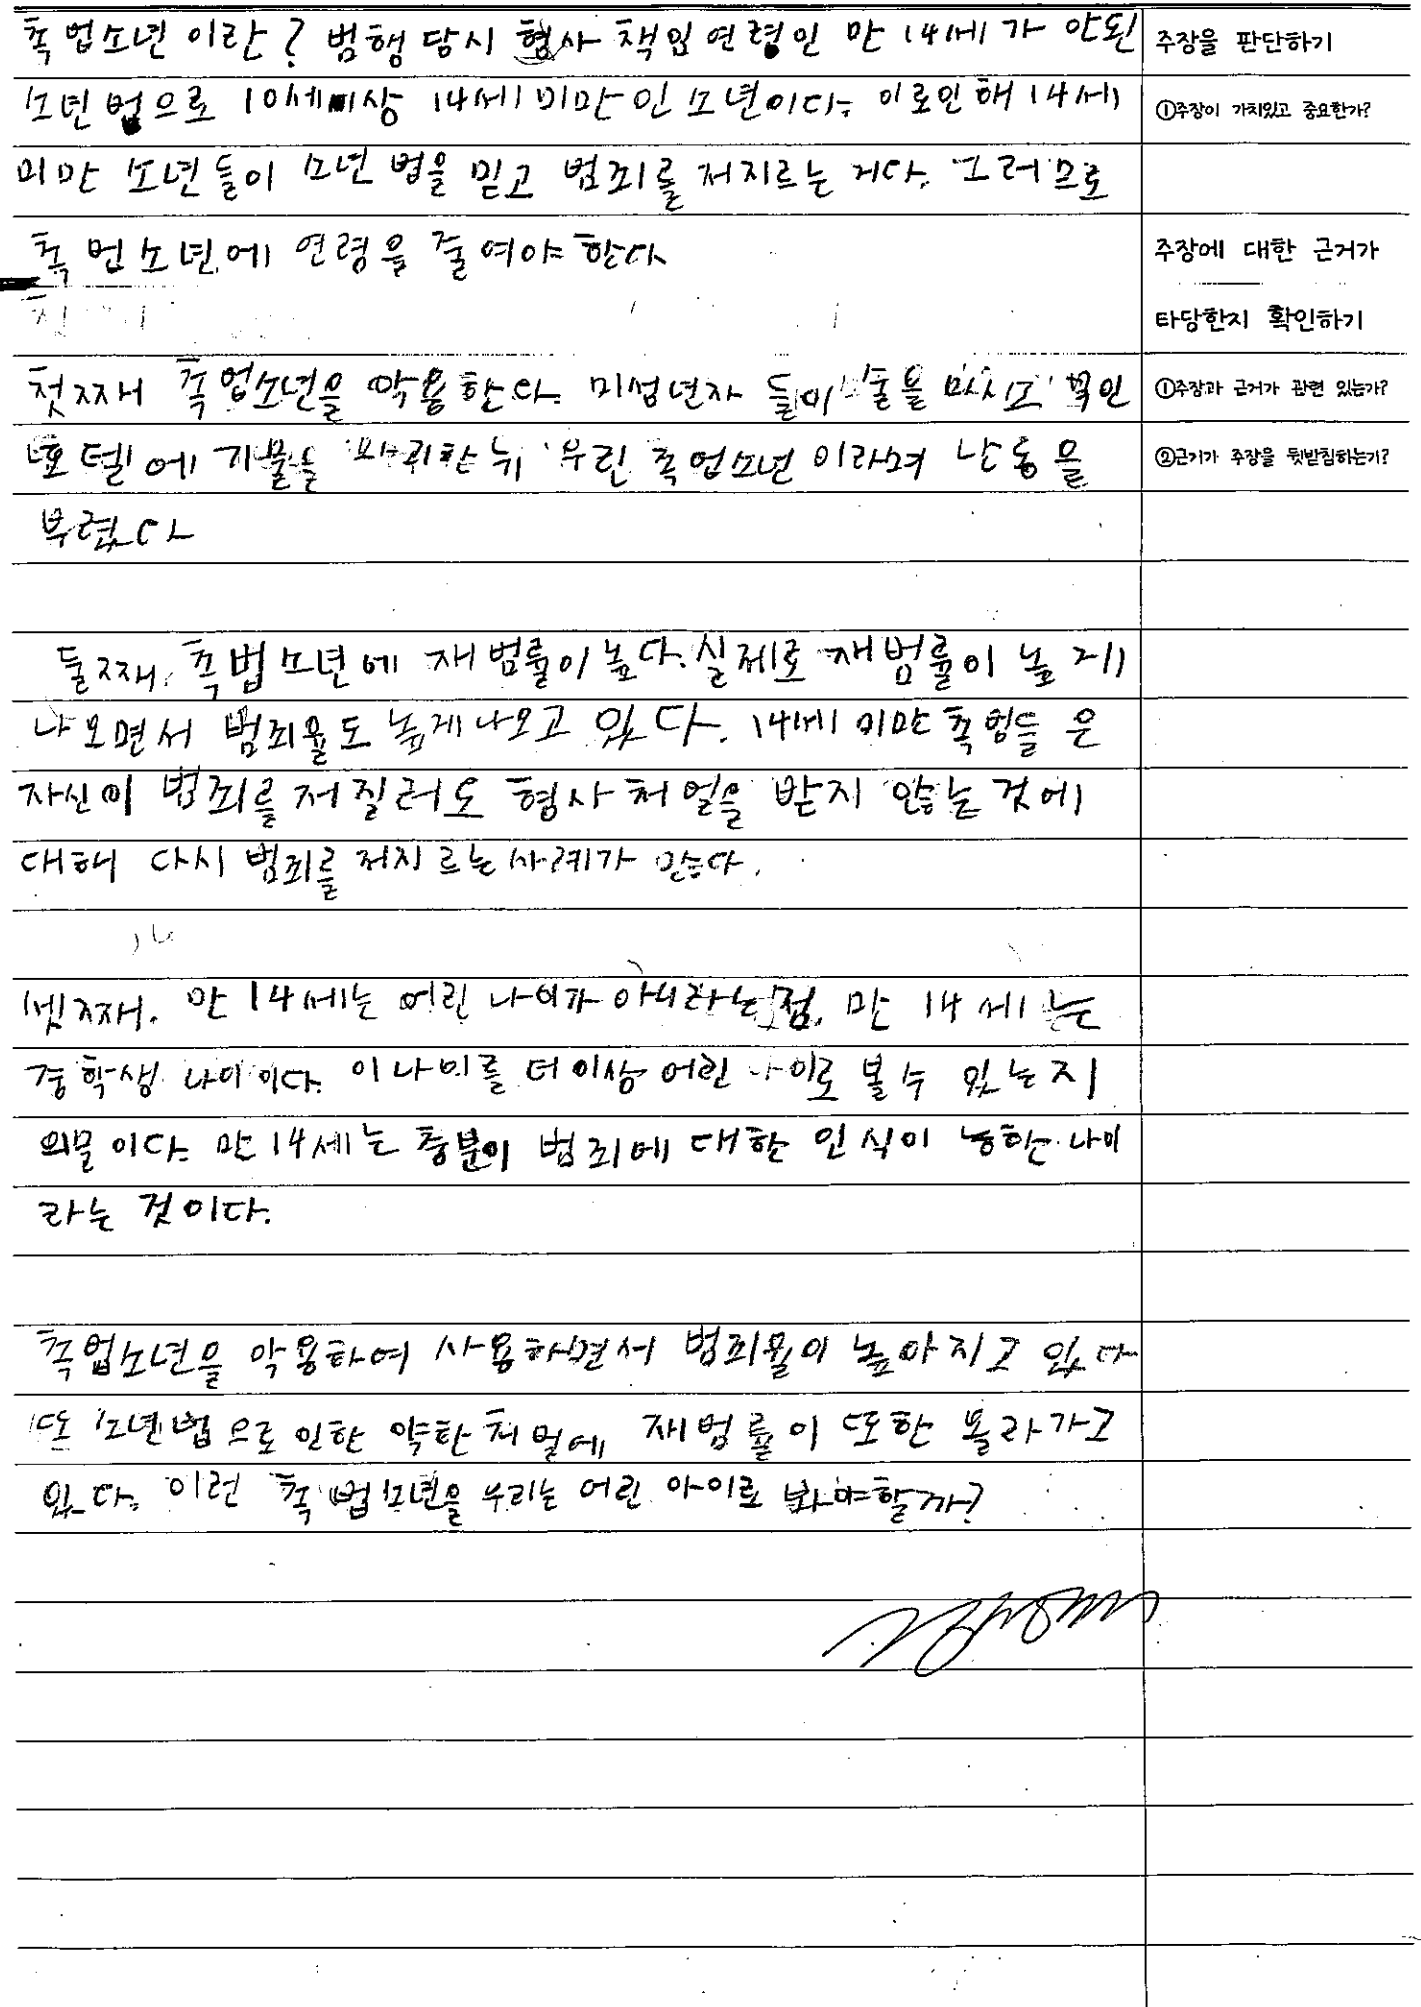 촉법소년 이란? 범행 당시 형사 책임연령인 만 14세가 안된
소년 법으로 10세이상 14세 미만인 소년이다. 이로인해 14세
미만 소년들이 소년 법을 믿고 범죄를 저지르는 게다. 그러므로
촉법소년에 연령을 줄여야 한다
첫째 촉법소년을 악용한다. 미성년자 들이 술을 마시고
호텔에 기물을 파괴한뒤 우린 촉법소년 이라며 난동을
부렸다
둘째. 촉법소년에 재범률이 높다. 실제로 재범률이 높게
나오면서 범죄율도 높게나오고 있다. 14세 미만 촉법들은
자신이 범죄를 저질러도 형사처벌을 받지 않는 것에
대해 다시 범죄를 저지르는 사례가 많다.
셋째. 만 14세는 어린 나이가 아니라는 점. 만 14세는
중학생 나이이다. 이나이를 더이상 어린 나이로 볼수 있는지
의문이다. 만 14세는 충분이 범죄에 대한 인식이 능한 나이
라는 것이다.
촉법소년을 악용하여 사용하면서 범죄율이 높아지고 있다
또 소년법으로 인한 약한 처벌에 재범률이 또한 올라가고
있다. 이런 촉법소년을 우리는 어린 아이로 봐야할까?
주장을 판단하기
①주장이 가치있고 중요한가?
주장에 대한 근거가
타당한지 확인하기
①주장과 근거가 관련 있는가?
②근거가 주장을 뒷받침하는가?